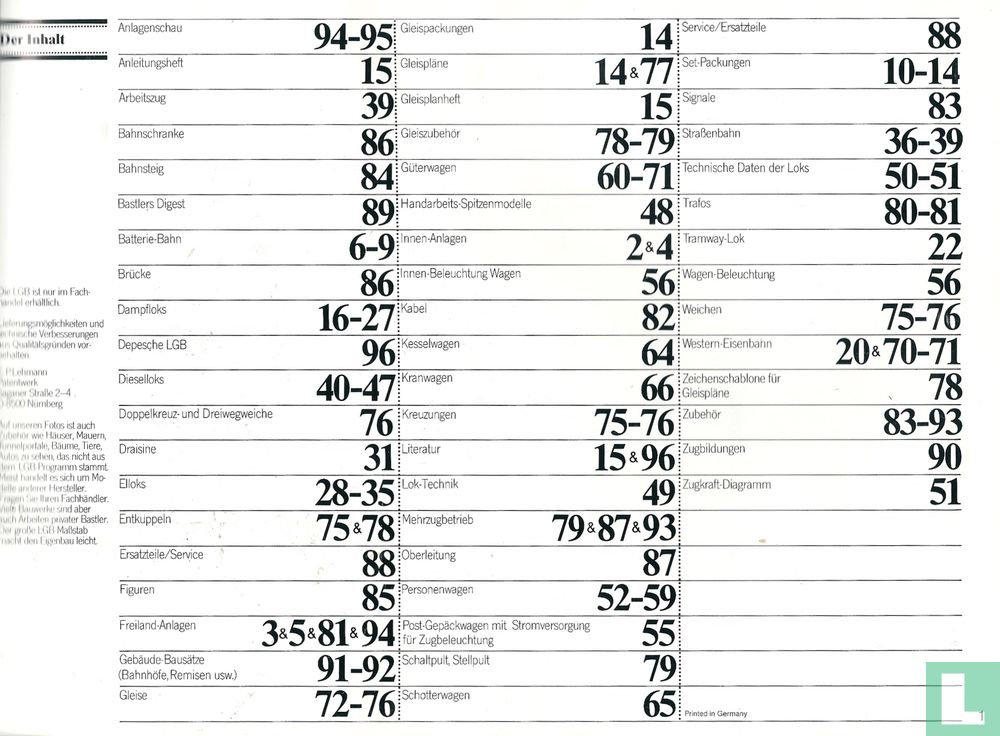 Der Inhalt
Die LGB ist nur im Fach-
handel erhältlich.
Lieferungsmöglichkeiten und
technische Verbesserungen
aus Qualitätsgründen vor-
behalten.
E. P. Lehmann
Patentwerk
Saganer Straße 2–4
D 8500 Nürnberg
Auf unseren Fotos ist auch
Zubehör wie Häuser, Mauern,
Tunnelportale, Bäume, Tiere,
Autos zu sehen, das nicht aus
dem LGB Programm stammt.
Meist handelt es sich um Mo-
delle anderer Hersteller.
Fragen Sie Ihren Fachhändler.
Viele Bauwerke sind aber
auch Arbeiten privater Bastler.
Der große LGB Maßstab
macht den Eigenbau leicht.
Anlagenschau 94–95
Anleitungsheft 15
Arbeitszug 39
Bahnschranke 86
Bahnsteig 84
Bastlers Digest 89
Batterie-Bahn 6–9
Brücke 86
Dampfloks 16–27
Depesche LGB 96
Dieselloks 40–47
Doppelkreuz- und Dreiwegweiche 76
Draisine 31
Elloks 28–35
Entkuppeln 75&78
Ersatzteile/Service 88
Figuren 85
Freiland-Anlagen 3&5&81&94
Gebäude-Bausätze
(Bahnhöfe, Remisen usw.) 91–92
Gleise 72–76
Gleispackungen 14
Gleispläne 14&77
Gleisplanheft 15
Gleiszubehör 78–79
Güterwagen 60–71
Handarbeits-Spitzenmodelle 48
Innen-Anlagen 2&4
Innen-Beleuchtung Wagen 56
Kabel 82
Kesselwagen 64
Kranwagen 66
Kreuzungen 75–76
Literatur 15&96
Lok-Technik 49
Mehrzugbetrieb 79&87&93
Oberleitung 87
Personenwagen 52–59
Post-Gepäckwagen mit Stromversorgung
für Zugbeleuchtung 55
Schaltpult, Stellpult 79
Schotterwagen 65
Service/Ersatzteile 88
Set-Packungen 10–14
Signale 83
Straßenbahn 36–39
Technische Daten der Loks 50–51
Trafos 80–81
Tramway-Lok 22
Wagen-Beleuchtung 56
Weichen 75–76
Western-Eisenbahn 20&70–71
Zeichenschablone für
Gleispläne 78
Zubehör 83–93
Zugbildungen 90
Zugkraft-Diagramm 51
Printed in Germany
L
1